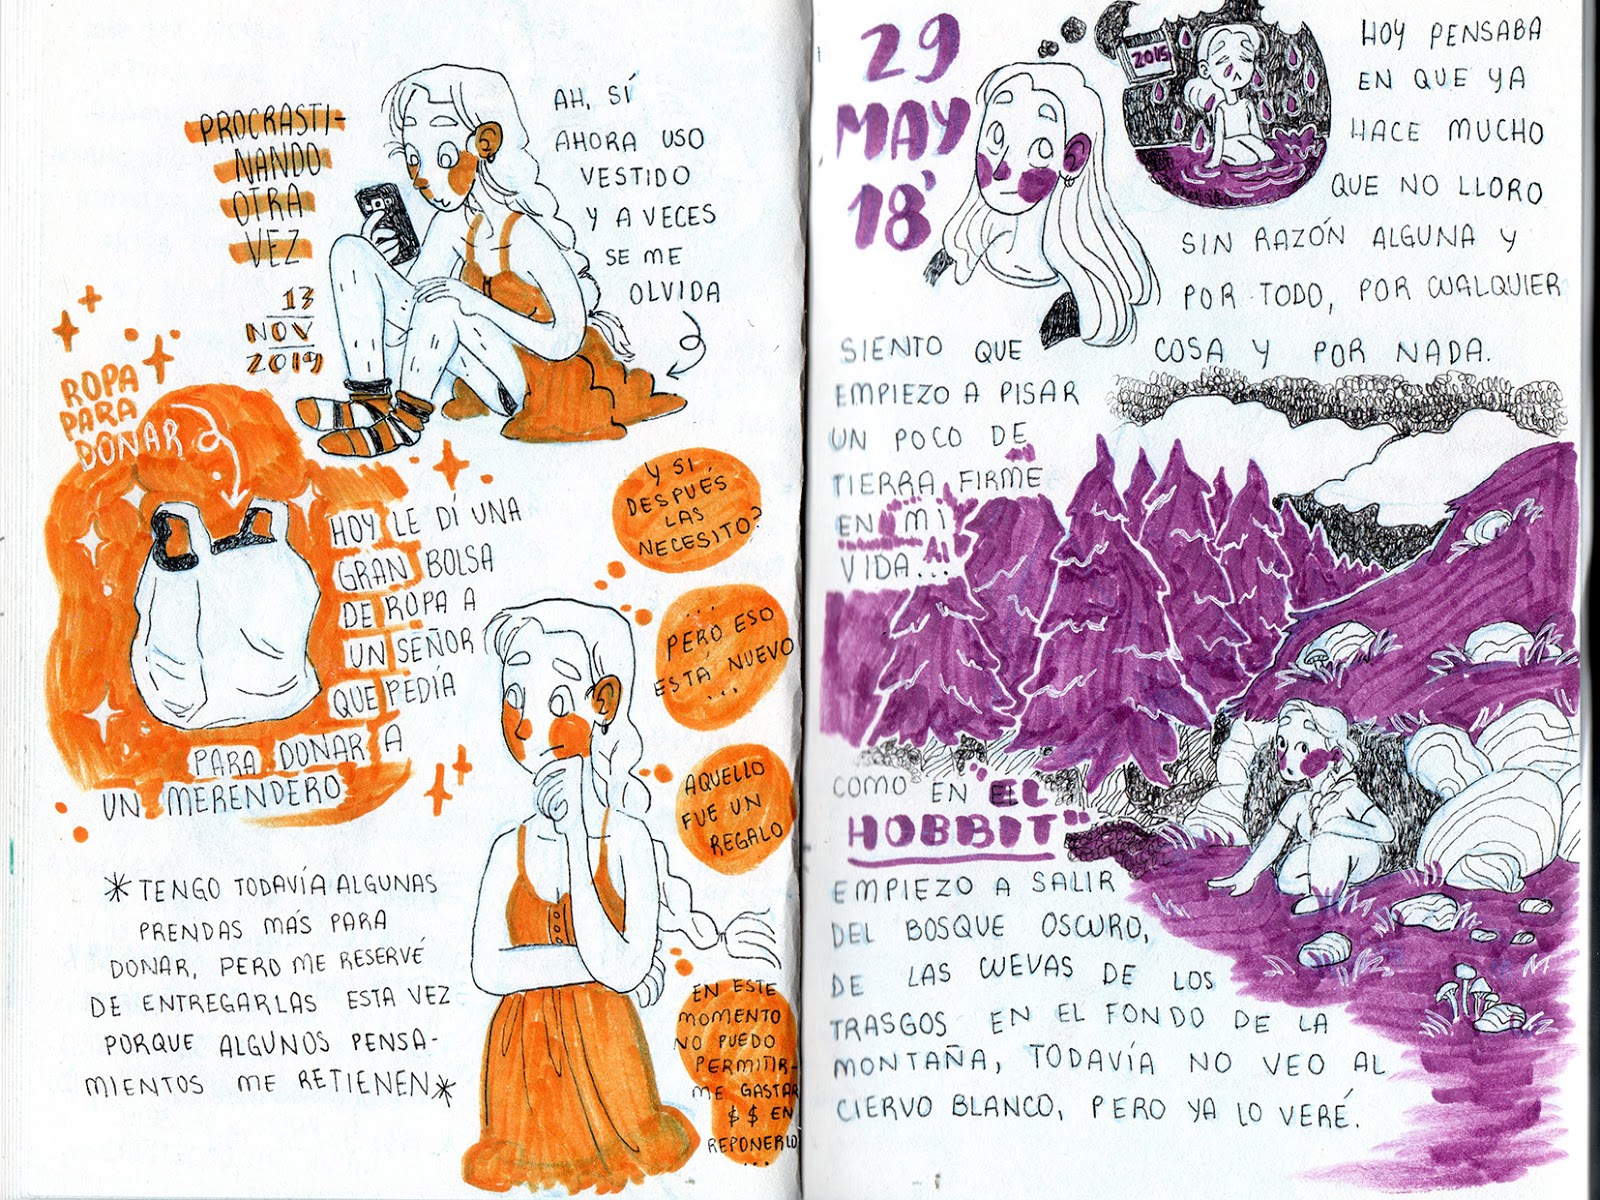 PROCRASTI-
NANDO
OTRA
VEZ
13
NOV
2019
AH, SÍ
AHORA USO
VESTIDO
Y A VECES
SE ME
OLVIDA
ROPA
PARA
DONAR
HOY LE DÍ UNA
GRAN BOLSA
DE ROPA A
UN SEÑOR
QUE PEDÍA
PARA DONAR A
UN MERENDERO
Y SI
DESPUÉS
LAS
NECESITO?
...
PERO ESO
ESTÁ NUEVO
...
AQUELLO
FUE UN
REGALO
EN ESTE
MOMENTO
NO PUEDO
PERMITIR-
ME GASTAR
$ $ EN
REPONERLO
...
*TENGO TODAVÍA ALGUNAS
PRENDAS MÁS PARA
DONAR, PERO ME RESERVÉ
DE ENTREGARLAS ESTA VEZ
PORQUE ALGUNOS PENSA-
MIENTOS ME RETIENEN*
29
MAY
18'
2015
HOY PENSABA
EN QUE YA
HACE MUCHO
QUE NO LLORO
SIN RAZÓN ALGUNA Y
POR TODO, POR CUALQUIER
COSA Y POR NADA.
SIENTO QUE
EMPIEZO A PISAR
UN POCO DE
TIERRA FIRME
EN MI
VIDA...
COMO EN "EL
HOBBIT"
EMPIEZO A SALIR
DEL BOSQUE OSCURO,
DE LAS CUEVAS DE LOS
TRASGOS EN EL FONDO DE LA
MONTAÑA, TODAVÍA NO VEO AL
CIERVO BLANCO, PERO YA LO VERÉ.